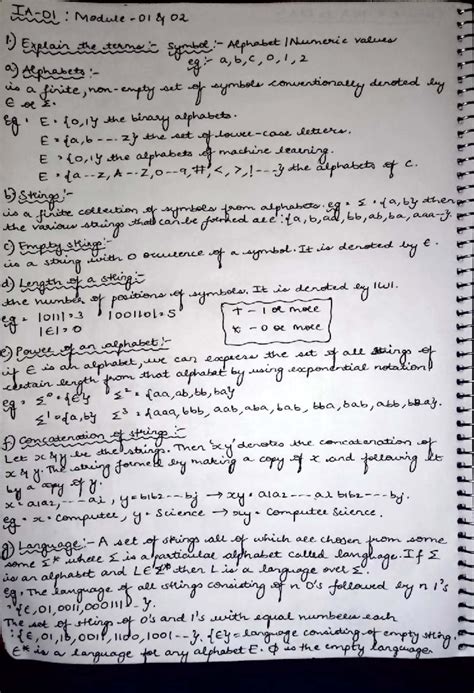 IA-01 : Module - 01 & 02
1) Explain the terms :- Symbol :- Alphabet | Numeric values
eg :- a, b, c, 0, 1, 2
a) Alphabets :-
is a finite, non-empty set of symbols conventionally denoted by
E or Σ.
Eg : E = {0,1} the binary alphabets.
E = {a, b --- z} the set of lower-case letters.
E = {0,1} the alphabets of machine learning.
E = {a--z, A--Z, 0--9, #, <, >, ! ---} the alphabets of C.
b) Strings :-
is a finite collection of symbols from alphabets. eg = Σ = {a, b} then
the various strings that can be formed are : {a, b, aa, bb, ab, ba, aaa--}.
c) Empty string :-
is a string with 0 occurence of a symbol. It is denoted by ϵ.
d) Length of a string :-
the number of positions of symbols. It is denoted by |w|.
eg = |011| = 3 |00110| = 5
|ϵ| = 0
+ - 1 or more
* - 0 or more
e) Power of an alphabet :-
if E is an alphabet, we can express the set of all strings of
certain length from that alphabet by using exponential notation
eg : Σ⁰ = {ϵ} Σ² = {aa, ab, bb, ba}
Σ¹ = {a, b} Σ³ = {aaa, bbb, aab, aba, bab, bba, bab, abb, bba}.
f) Concatenation of strings :-
Let x & y be the strings. Then 'xy' denotes the concatenation of
x & y. The string formed by making a copy of x and following it
by a copy of y.
x = a1a2, --- ai, y = b1b2 --- bj → xy = a1a2 --- ai b1b2 --- bj.
eg = x = Computer, y = Science → xy = Computer Science.
g) Language :- A set of strings all of which are chosen from some
some Σ* where Σ is a particular alphabet called language. If Σ
is an alphabet and L∈Σ* then L is a language over Σ.
eg. The language of all strings consisting of n 0's followed by n 1's
: {ϵ, 01, 0011, 000111 ---}.
The set of strings of 0's and 1's with equal numbers each
: {ϵ, 01, 10, 0011, 1100, 1001 ---}. {ϵ} = language consisting of empty string.
E* is a language for any alphabet E. Φ is the empty language